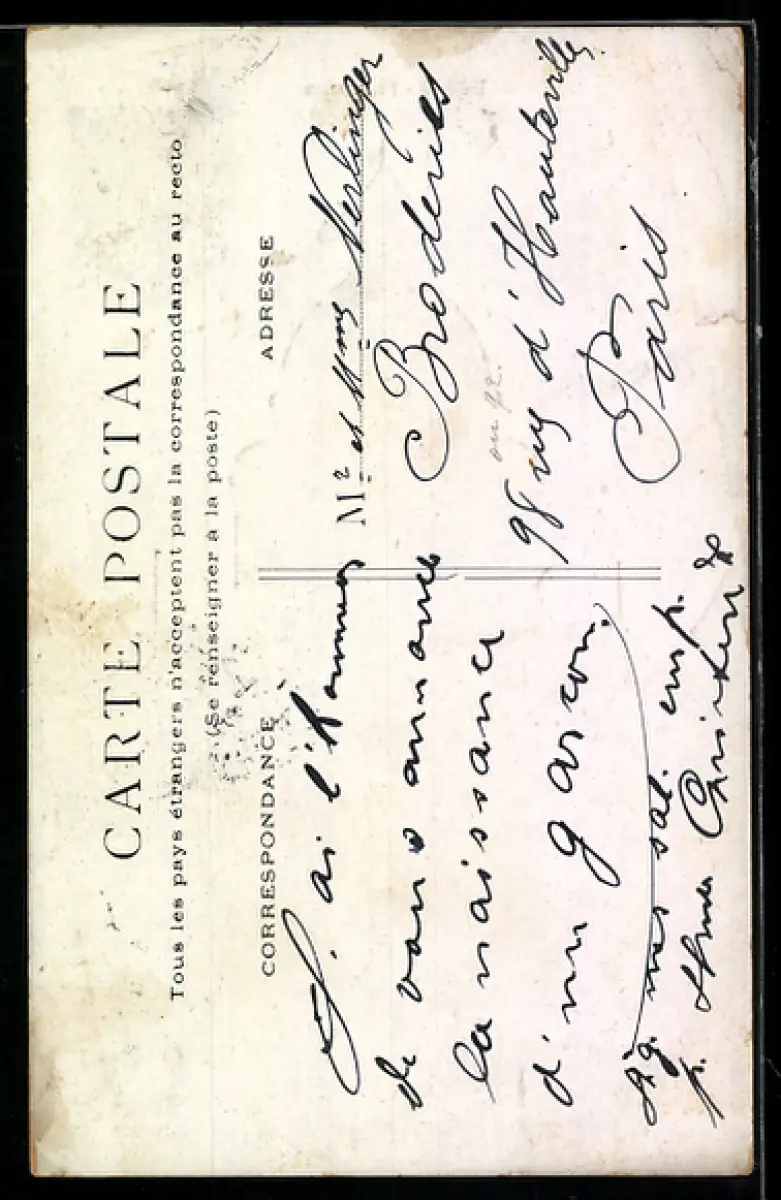 CARTE POSTALE
Tous les pays étrangers n'acceptent pas la correspondance au recto
(Se renseigner à la poste)
CORRESPONDANCE
J'ai l'honneur
de vous annoncer
la naissance
d'un garçon.
mes sal. emp.
p.
ADRESSE
Mr et Mme
Broderies
98 rue d'Hauteville
Paris